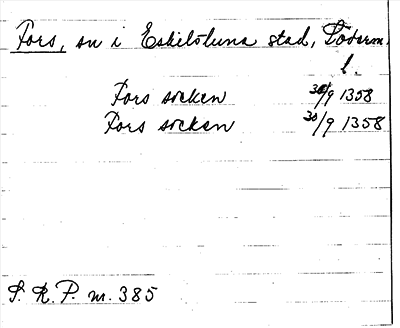 Fors, sn i Eskilstuna stad, Söderm.
l.
Fors socken 30/9 1358
Fors socken 30/9 1358
S. R. P. n. 385